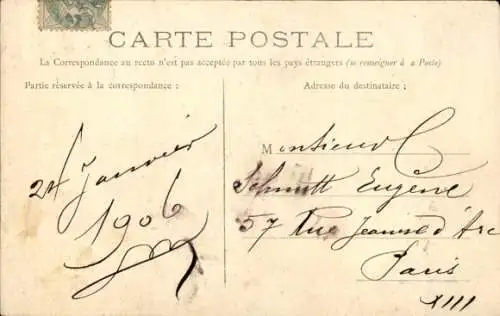 CARTE POSTALE
La Correspondance au recto n'est pas acceptée par tous les pays étrangers (se renseigner à la Poste)
Partie réservée à la correspondance :
Adresse du destinataire :
24 Janvier
1906
Monsieur
Schmitt Eugène
57 Rue Jeanne d'Arc
Paris
XIII